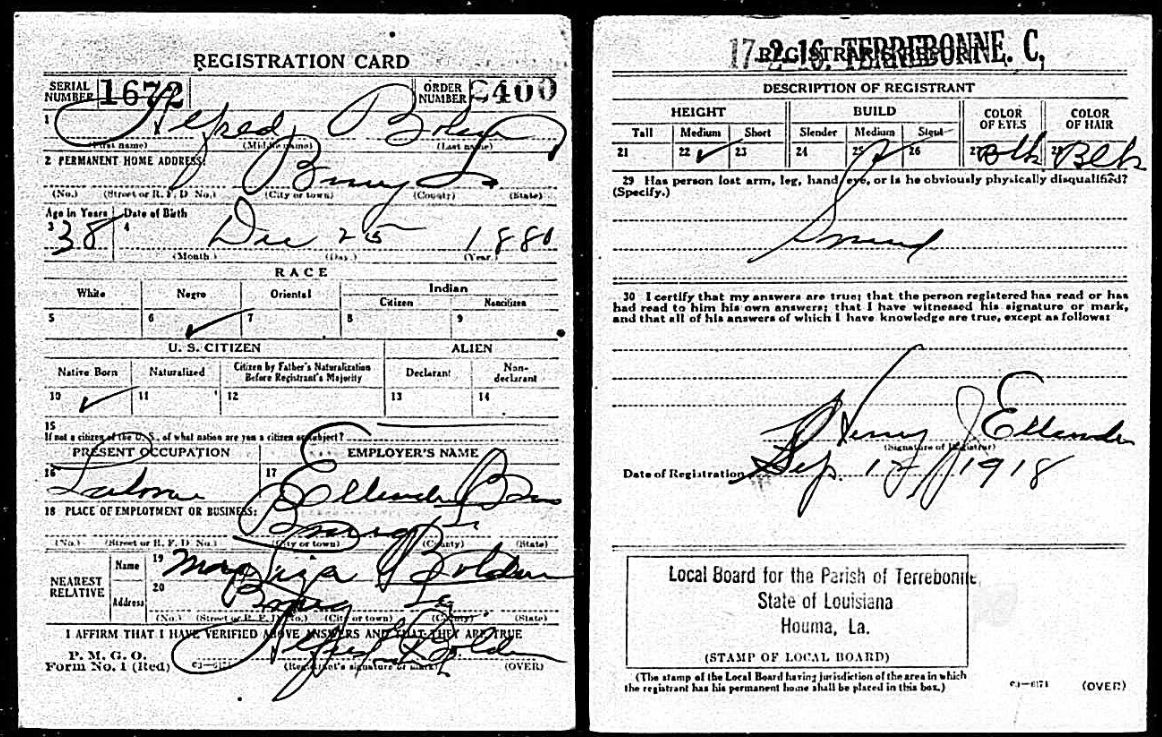 REGISTRATION CARD
SERIAL NUMBER 1672 ORDER NUMBER 2400
1 Alfred Bolden
(First name) (Middle name) (Last name)
2 PERMANENT HOME ADDRESS:
Bourg La
(No.) (Street or R. F. D. No.) (City or town) (County) (State)
Age in Years Date of Birth
3 38 4 Dec 25 1880
(Month.) (Day.) (Year.)
RACE
White Negro Oriental Indian
Citizen Noncitizen
5 6 ✓ 7 8 9
U. S. CITIZEN ALIEN
Native Born Naturalized Citizen by Father's Naturalization Before Registrant's Majority Declarant Non-declarant
10 ✓ 11 12 13 14
15
If not a citizen of the U. S., of what nation are you a citizen or subject?
PRESENT OCCUPATION EMPLOYER'S NAME
16 17 Ellender Bros
18 PLACE OF EMPLOYMENT OR BUSINESS:
Bourg La
(No.) (Street or R. F. D. No.) (City or town) (County) (State)
NEAREST RELATIVE Name 19 Bolden
Address 20 Bourg La
(No.) (Street or R. F. D. No.) (City or town) (County) (State)
I AFFIRM THAT I HAVE VERIFIED ABOVE ANSWERS AND THAT THEY ARE TRUE
P. M. G. O.
Form No. 1 (Red) c3—6171 Alfred Bolden
(Registrant's signature or mark) (OVER)
17-2-16. TERREBONNE. C,
REGISTRAR'S REPORT
DESCRIPTION OF REGISTRANT
HEIGHT BUILD COLOR OF EYES COLOR OF HAIR
Tall Medium Short Slender Medium Stout
21 22 ✓ 23 24 25 ✓ 26 27 Blk 28 Blk
29 Has person lost arm, leg, hand, eye, or is he obviously physically disqualified?
(Specify.)
30 I certify that my answers are true; that the person registered has read or has
had read to him his own answers; that I have witnessed his signature or mark,
and that all of his answers of which I have knowledge are true, except as follows:
Henry J Ellender
(Signature of Registrar)
Date of Registration Sep. 12 1918
Local Board for the Parish of Terrebonne,
State of Louisiana
Houma, La.
(STAMP OF LOCAL BOARD)
(The stamp of the Local Board having jurisdiction of the area in which
the registrant has his permanent home shall be placed in this box.)
c3—6171 (OVER)